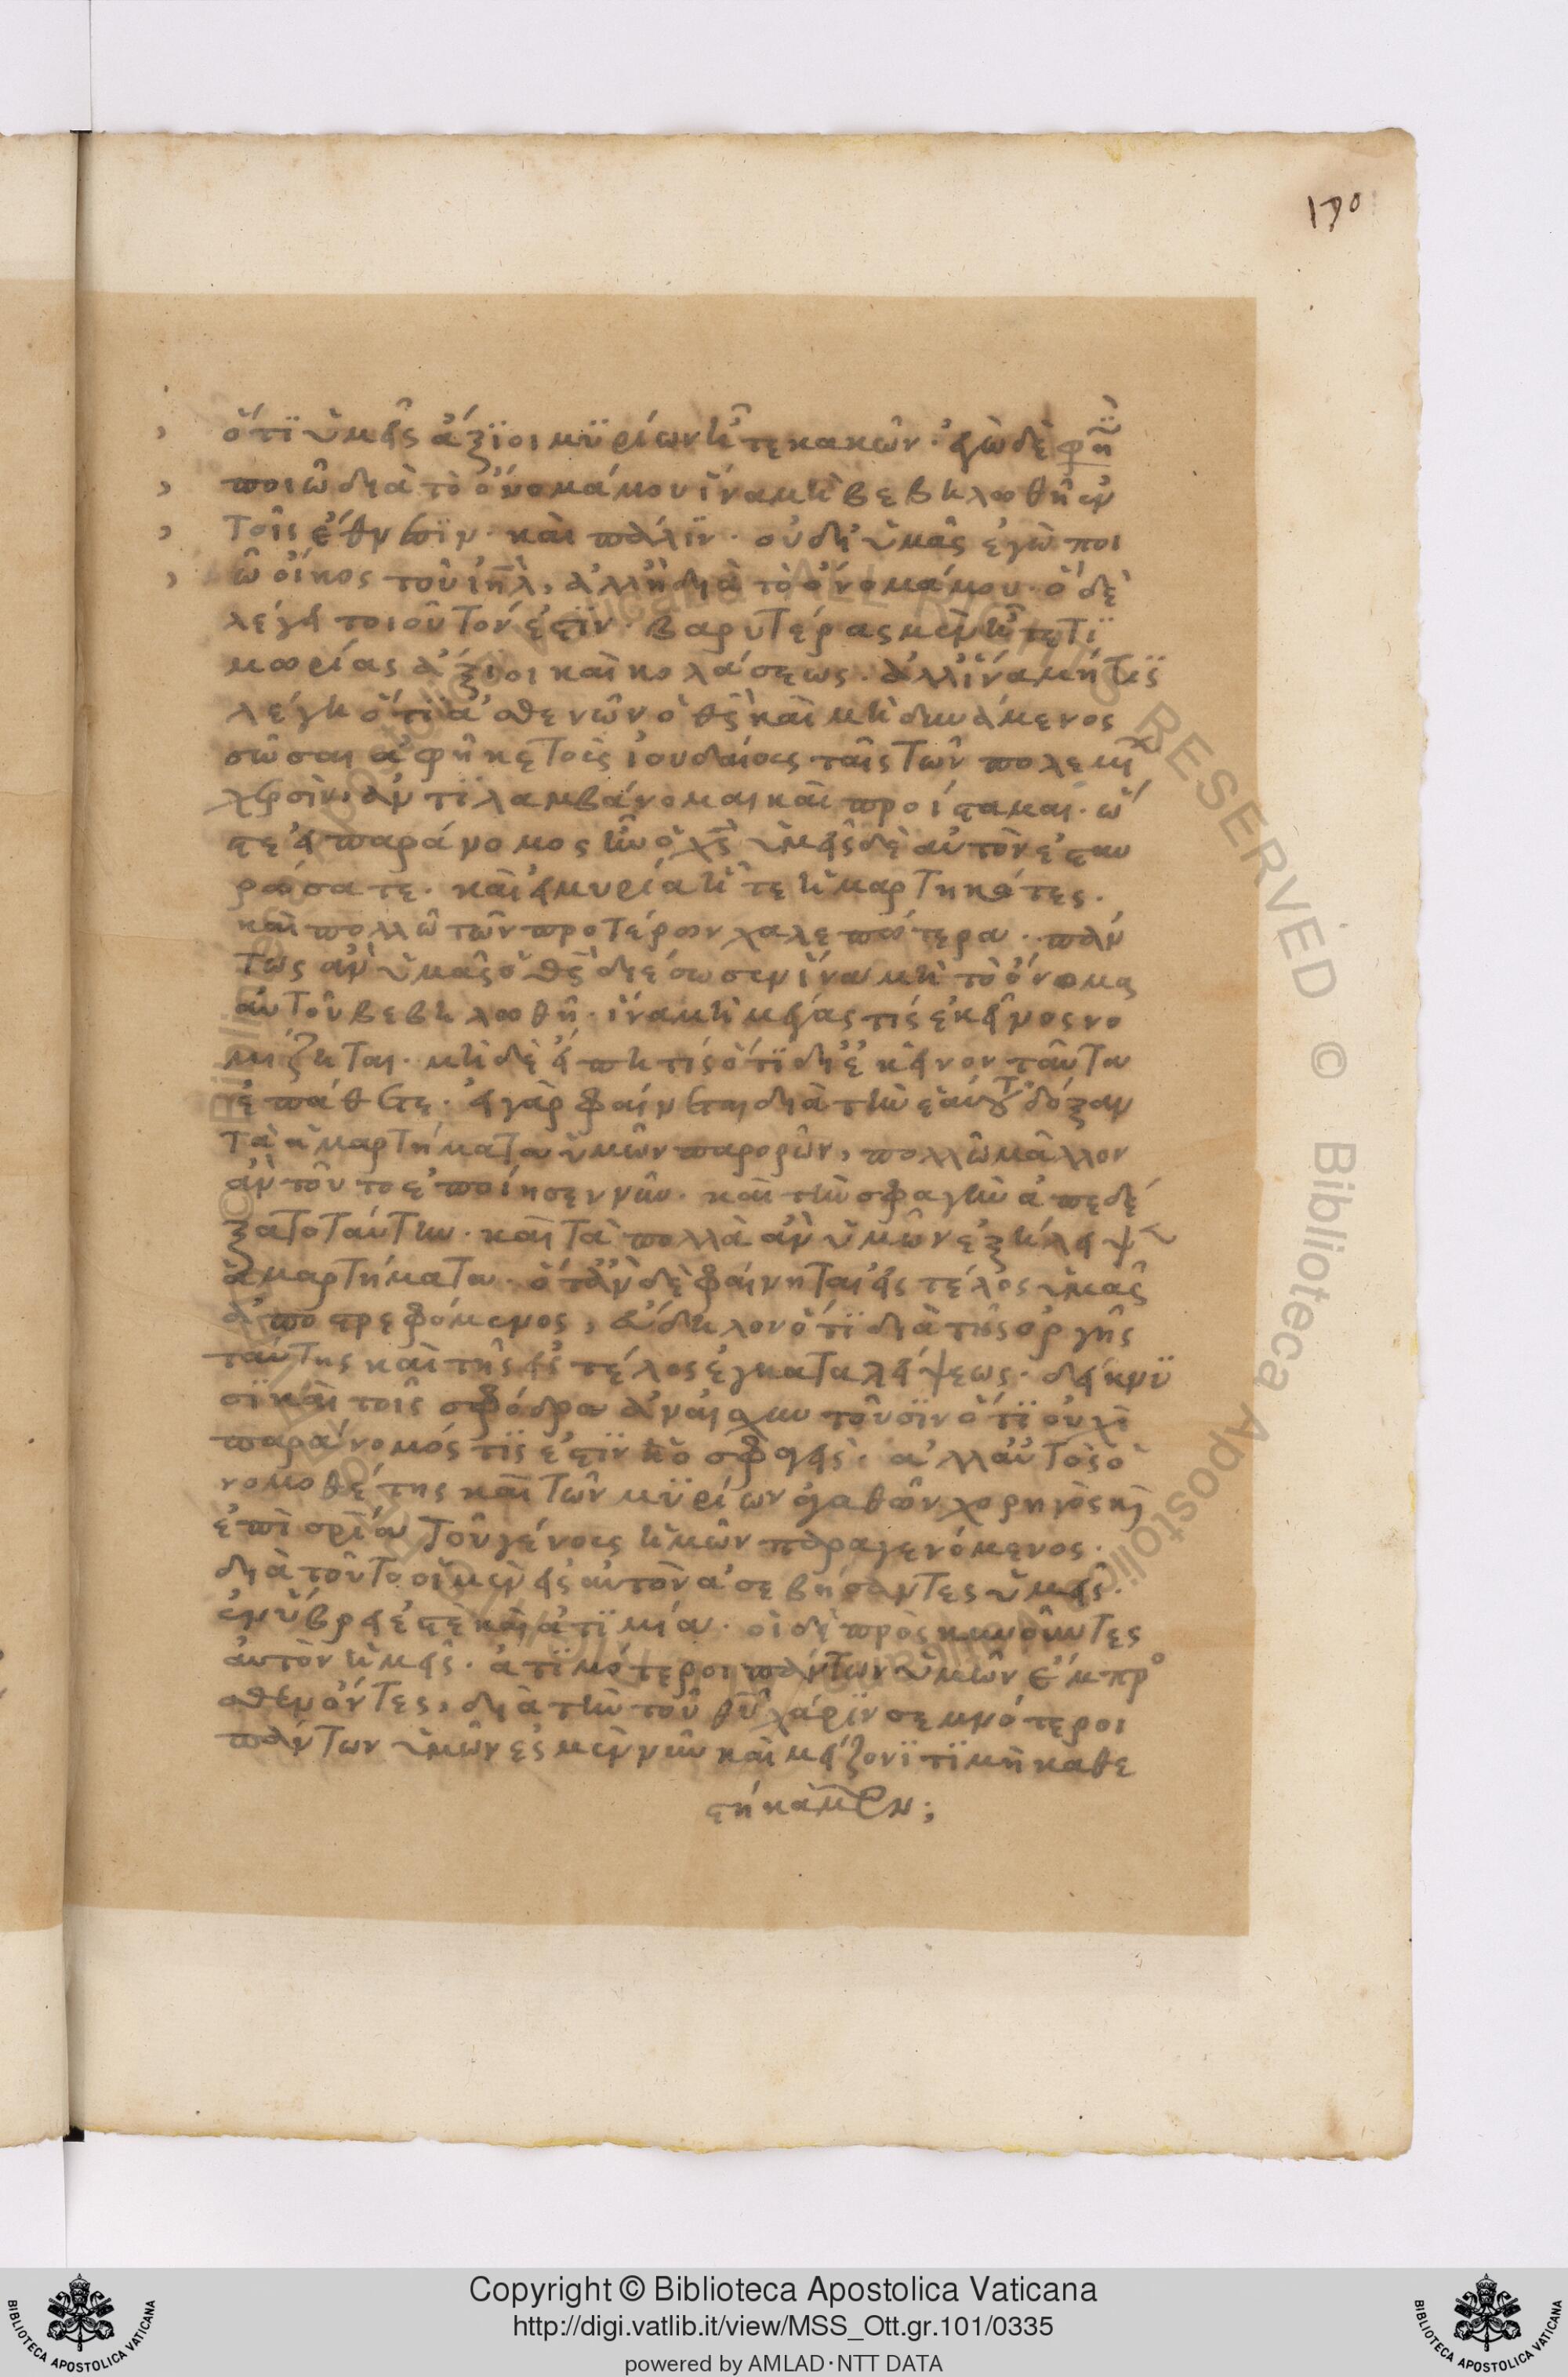 170
ὅτϊ ὑμεῖς ἄξϊοι μϋρίων ἦτε κακῶν· ἐγὼ δὲ φη
ποιῶ διὰ τὸ ὄνομά μου ἵνα μὴ βεβηλωθῆ ἐν
τοῖς ἔθνεσϊν· καὶ πάλϊν· οὐ δι' ὑμᾶς ἐγὼ ποι
ῶ οἶκος τοῦ ιηλ, ἀλλ' ἢ διὰ τὸ ὄνομά μου· ὃ δὲ
λέγει τοιοῦτον ἐστϊν· βαρυτέρας μὲν ἦτε τϊ
μωρίας ἄξϊοι καὶ κολάσεως· ἀλλ' ἵνα μή τϊς
λέγη ὅτϊ ἀσθενῶν ὁ θς καὶ μὴ δυνάμενος
σῶσαι ἀφῆκε τοῖς ἰουδαίοις ταῖς τῶν πολεμι
χερσὶν, ἀντϊλαμβάνομαι καὶ προίσταμαι· ὥ
στε εἰ παράνομος ἦν ὁ χς ὑμεῖς δὲ αὐτὸν ἐσταυ
ρώσατε· καὶ εἰ μυρία ἦτε ἡμαρτηκότες·
καὶ πολλῶ τῶν προτέρων χαλεπώτερα· πάν
τως ἂν ὑμᾶς ὁ θς διέσωσεν ἵνα μὴ τὸ ὄνομα
αὐτοῦ βεβηλωθῆ· ἵνα μὴ μέγας τίς ἐκεῖνος νο
μίζηται· μὴ δὲ εἴπη τίς ὅτϊ δι' ἐκεῖνον ταῦτα
ἐπάθετε· εἰ γὰρ φαίνεται διὰ τὴν ἑαυτου δόξαν
τὰ ἁμαρτήματα ὑμῶν παρορῶν, πολλῶ μᾶλλον
ἂν τοῦτο ἐποίησεν νῦν· καὶ τὴν σφαγὴν ἀπεδέ
ξατο ταύτην· καὶ τὰ πολλὰ ἂν ὑμῶν ἐξήλειψε
ἁμαρτήματα· ὅταν δὲ φαίνηται εἰς τέλος ὑμᾶς
ἀποστρεφόμενος, εὔδηλον ὅτϊ διὰ τῆς ὀργῆς
ταύτης καὶ τῆς εἰς τέλος ἐγκαταλείψεως· δείκνϋ
σϊ καὶ τοῖς σφόδρα ἀναισχυντοῦσϊν ὅτϊ οὐχὶ
παράνομός τϊς ἐστϊν ὁ σφαγεὶς· ἀλλ' αὐτὸς ὁ
νομοθέτης καὶ τῶν μϋρίων ἀγαθῶν χορηγὸς καὶ
ἐπὶ σρία τοῦ γένους ἡμῶν παραγενόμενος·
διὰ τοῦτο οἱ μὲν εἰς αὐτὸν ἀσεβήσαντες ὑμεῖς·
ἐν ὕβρει ἐστὲ καὶ ἀτϊμία· οἱ δὲ προσκυνοῦντες
αὐτὸν ἡμεῖς· ἀτϊμότεροι πάντων ὑμῶν ἔμπρο
σθεν ὄντες, διὰ τὴν τοῦ θυ χάρϊν σεμνότεροι
πάντων ὑμῶν ἐσμὲν νῦν καὶ μείζονϊ τϊμῆ καθε
στήκαμεν;
© Biblioteca Apostolica Vaticana
ALL RIGHTS RESERVED © Biblioteca Apostolica Vaticana
BIBLIOTECA APOSTOLICA VATICANA
Copyright © Biblioteca Apostolica Vaticana
http://digi.vatlib.it/view/MSS_Ott.gr.101/0335
powered by AMLAD·NTT DATA
BIBLIOTECA APOSTOLICA VATICANA